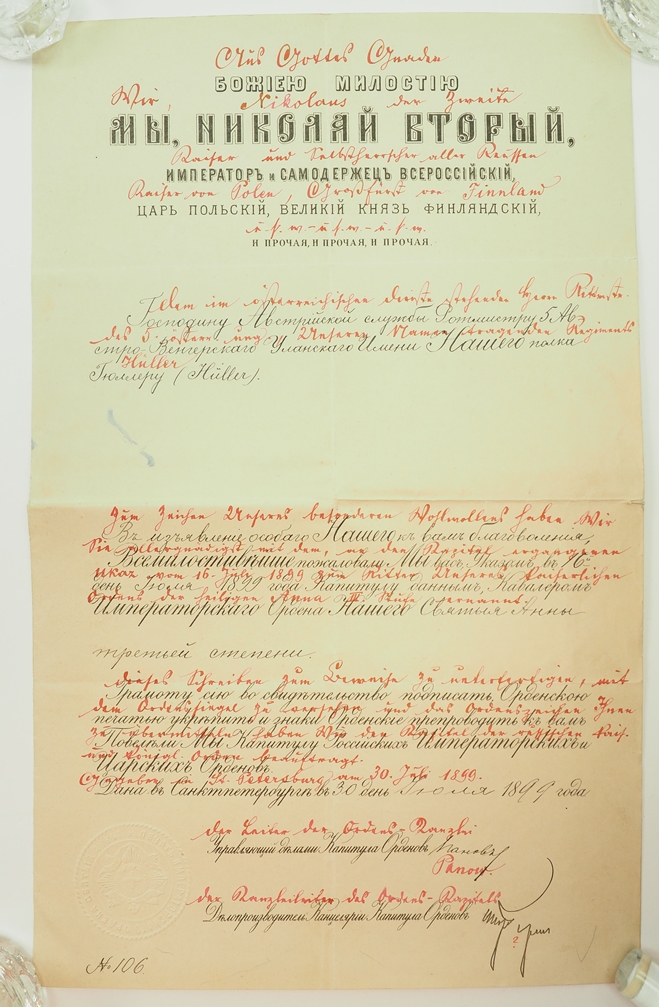 Aus Gottes Gnaden
БОЖІЕЮ МИЛОСТІЮ
Wir, Nikolaus der Zweite
МЫ, НИКОЛАЙ ВТОРЫЙ,
Kaiser und Selbstherrscher aller Reussen
ИМПЕРАТОРЪ и САМОДЕРЖЕЦЪ ВСЕРОССІЙСКІЙ,
Kaiser von Polen, Großfürst von Finnland
ЦАРЬ ПОЛЬСКІЙ, ВЕЛИКІЙ КНЯЗЬ ФИНЛЯНДСКІЙ,
u. s. w - u. s. w - u. s. w.
И ПРОЧАЯ, И ПРОЧАЯ, И ПРОЧАЯ.
dem im österreichischen dienste stehenden Herrn Rittmstr.
Господину Австрійской службы Ротмистру 5 Ав-
des 5. österr. ung. Unseren Namen tragenden Regiments
стро-Венгерскаго Уланскаго Имени Нашего полка
Hüller
Гюллеру (Hüller).
Zum Zeichen Unseres besonderen Wohlwollens haben Wir
Въ изъявленіе особаго Нашего къ вамъ благоволенія,
Sie allergnädigst mit dem, an das Kapitel ergangenen
Всемилостивѣйше пожаловали Мы васъ, Указомъ, въ 16
Ukas vom 16. July 1899 zum Ritter Unseres Kaiserlichen
день Іюля 1899 года Капитулу даннымъ, Кавалеромъ
Ordens der heiligen Anna III Stufe ernannt.
Императорскаго Ордена Нашего Святыя Анны
третьей степени.
dieses Schreiben zum Beweise zu unterfertigen, mit
Грамоту сію во свидѣтельство подписать, Орденскою
dem Ordenssiegel zu versehen und das Ordenszeichen Ihnen
печатью укрѣпить и знаки Орденскіе препроводить къ вамъ
zu übermitteln haben Wir das Kapitel der russischen Kais.
Повелѣли Мы Капитулу Россійскихъ Императорскихъ и
und königl. Orden beauftragt.
Царскихъ Орденовъ.
Gegeben in St. Petersburg am 30. July 1899.
Дана въ Санктпетербургѣ въ 30 день Іюля 1899 года
der Leiter der Ordens-Kanzlei
Управляющій дѣлами Капитула Орденовъ Пановъ
Panow.
der Kanzleileiter des Ordens-Kapitels
Дѣлопроизводитель Канцеляріи Капитула Орденовъ
?
№ 106.